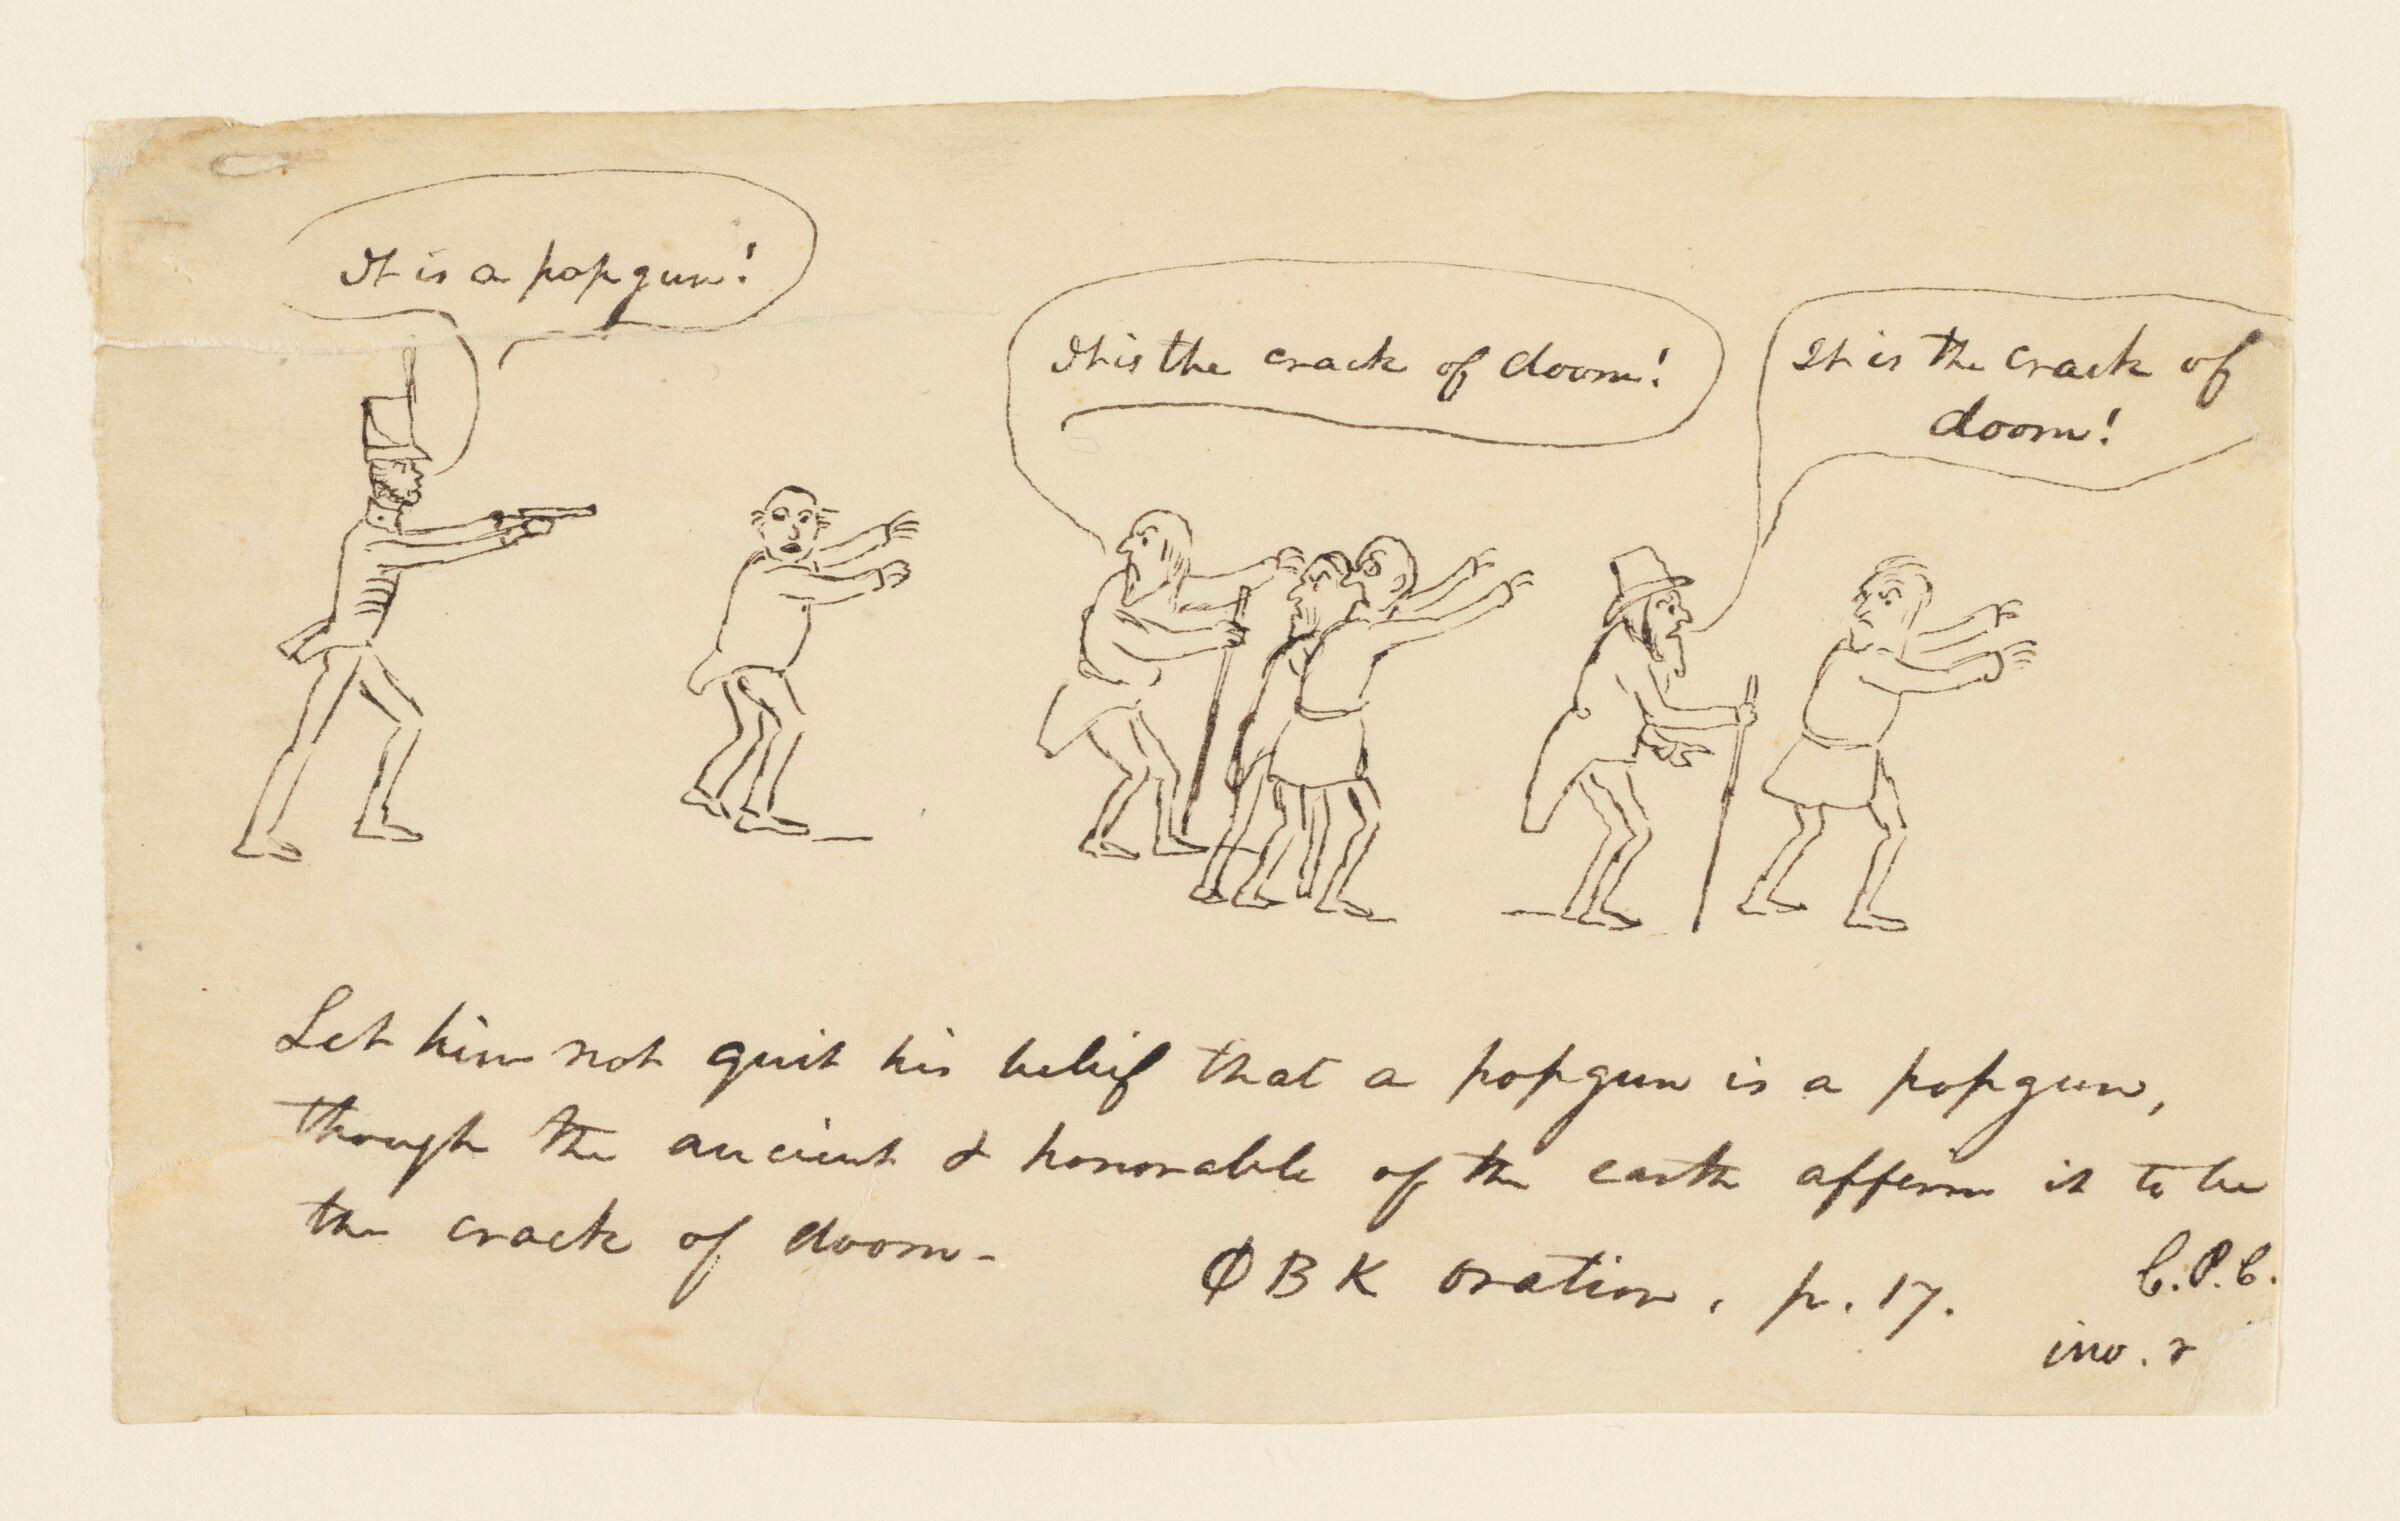 It is a popgun!
It is the crack of doom!
It is the crack of
doom!
Let him not quit his belief that a popgun is a popgun,
though the ancient & honorable of the earth affirm it to be
the crack of doom-
ΦBK oration. p. 17.
C.P.C.
inv.